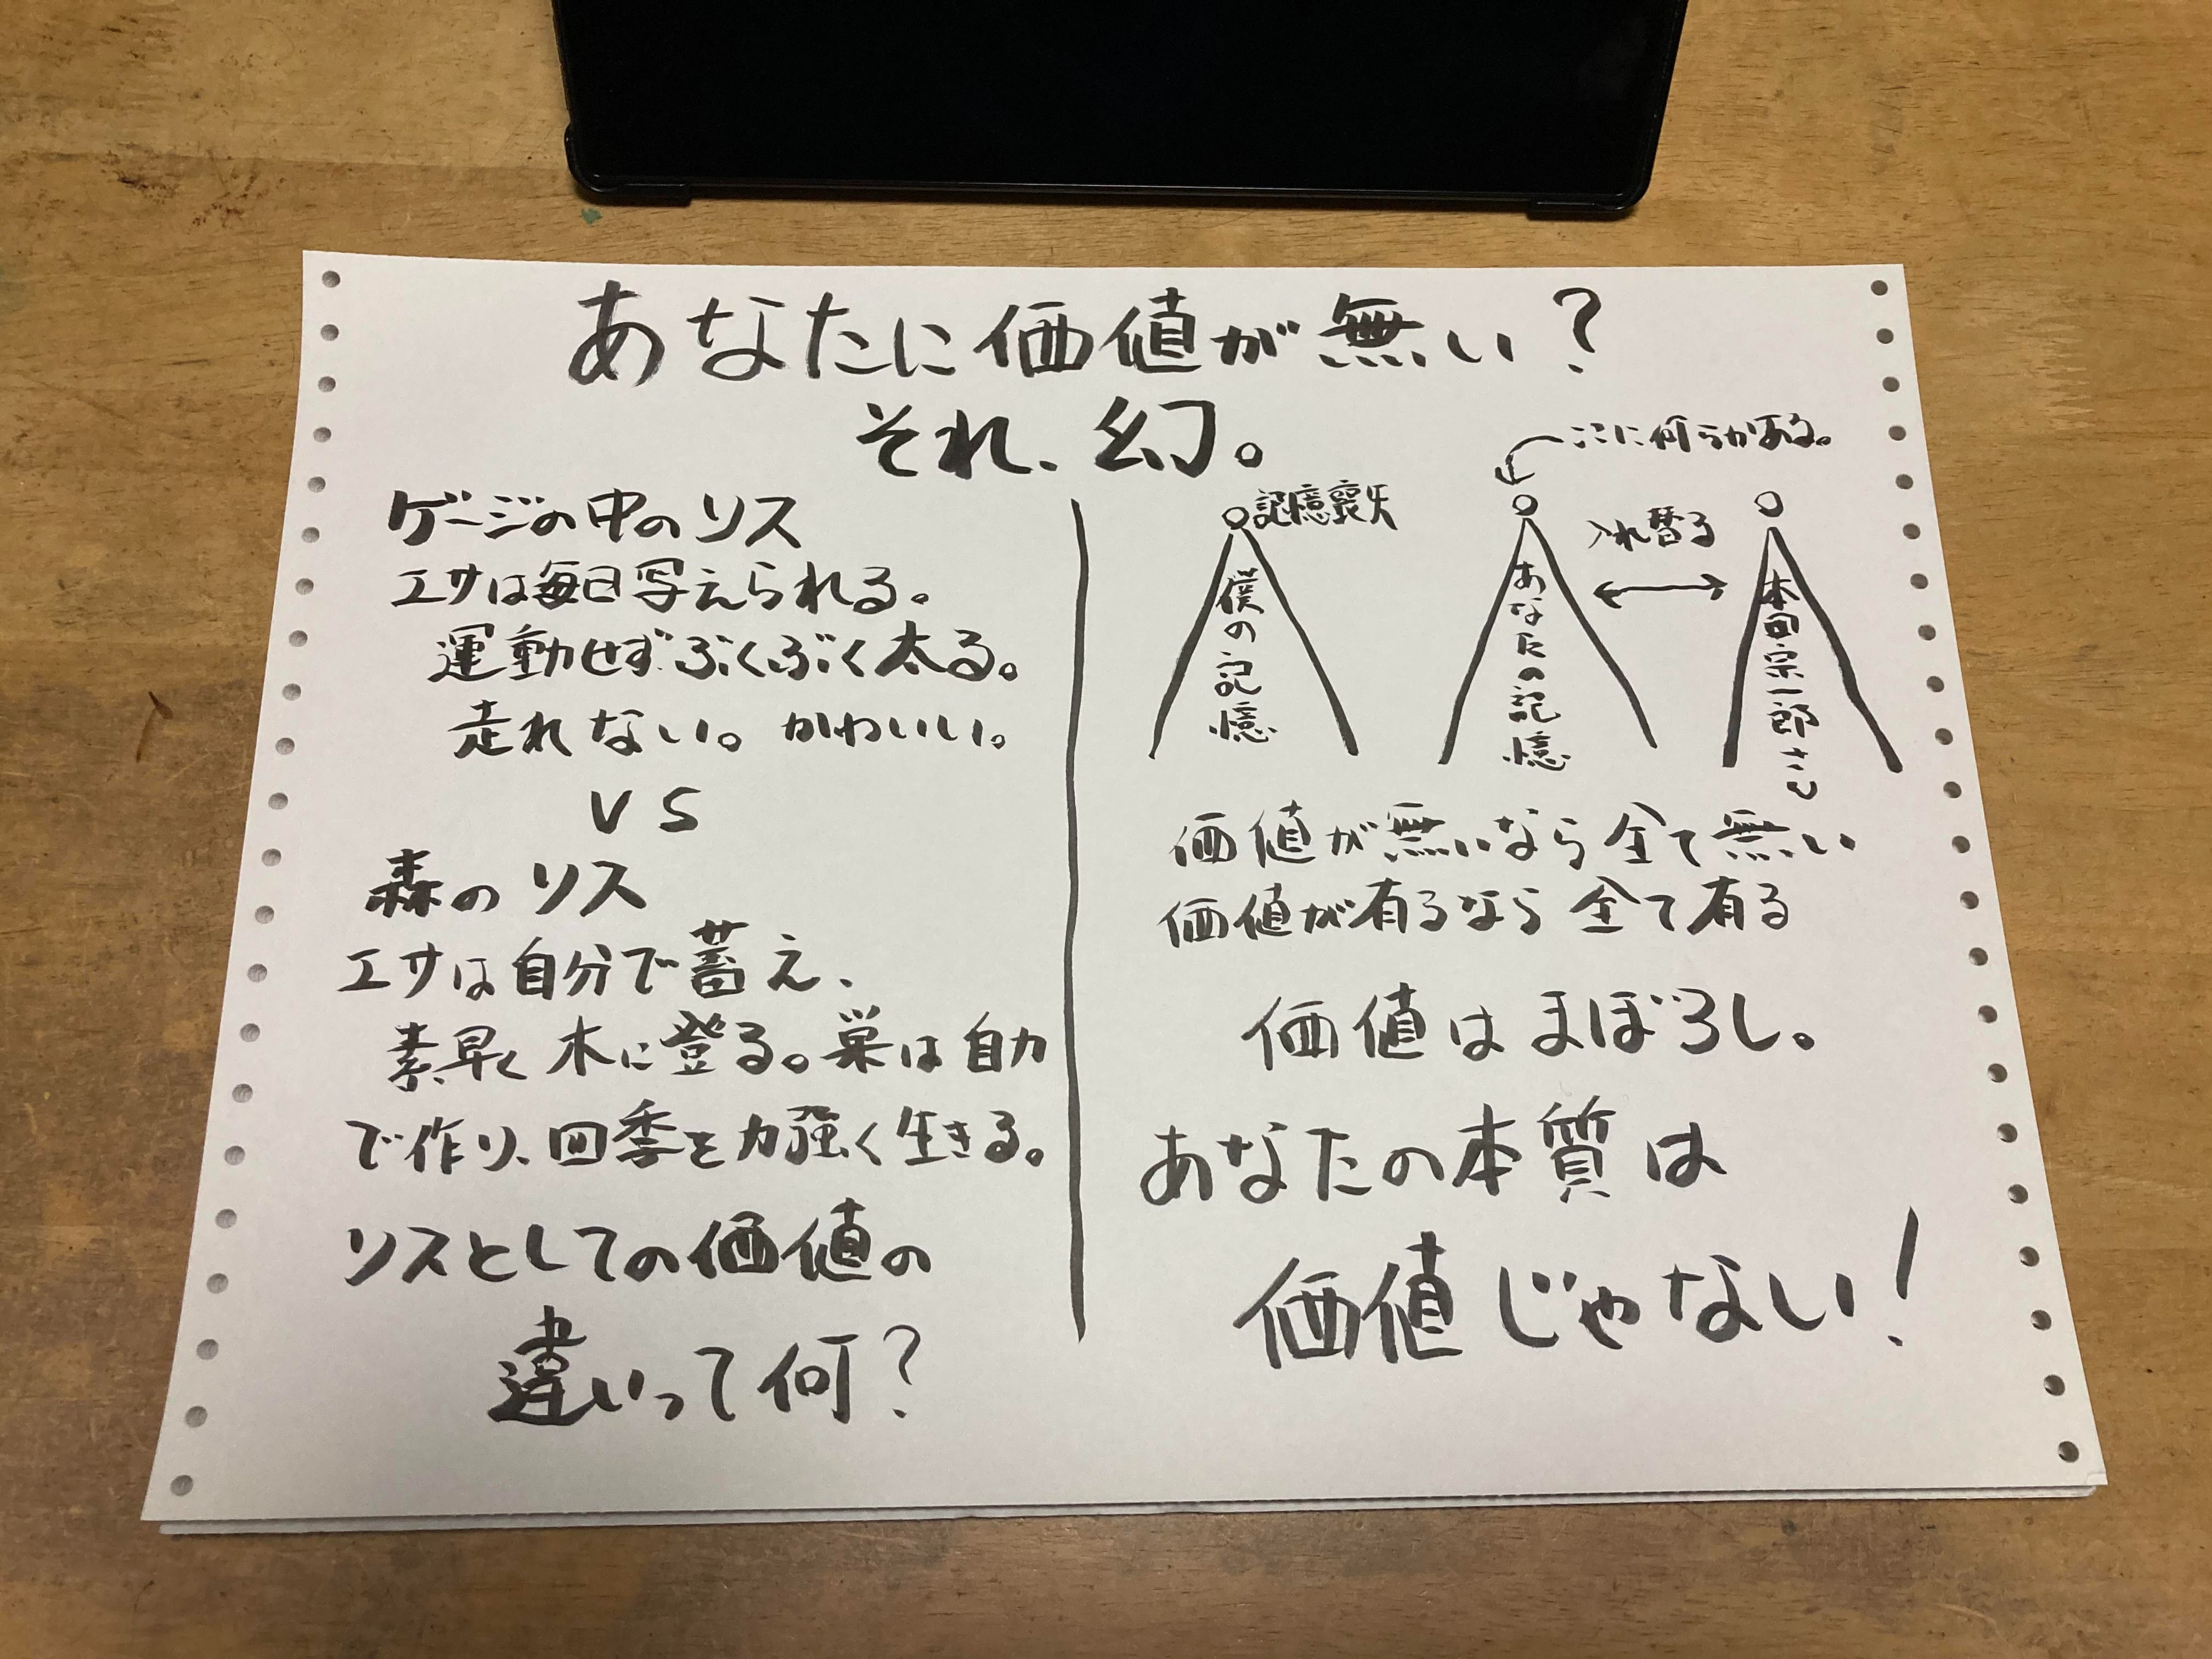 あなたに価値が無い？
それ、幻。
ゲージの中のリス
エサは毎日写えられる。
運動せずぶくぶく太る。
走れない。かわいい。
VS
森のリス
エサは自分で蓄え、
素早く木に登る。巣は自力
で作り、四季を力強く生きる。
リスとしての価値の
違いって何？
記憶喪失
僕の記憶
ここに何らかある。
あなたの記憶
入れ替る
本田宗一郎さん
価値が無いなら全て無い
価値が有るなら全て有る
価値はまぼろし。
あなたの本質は
価値じゃない！